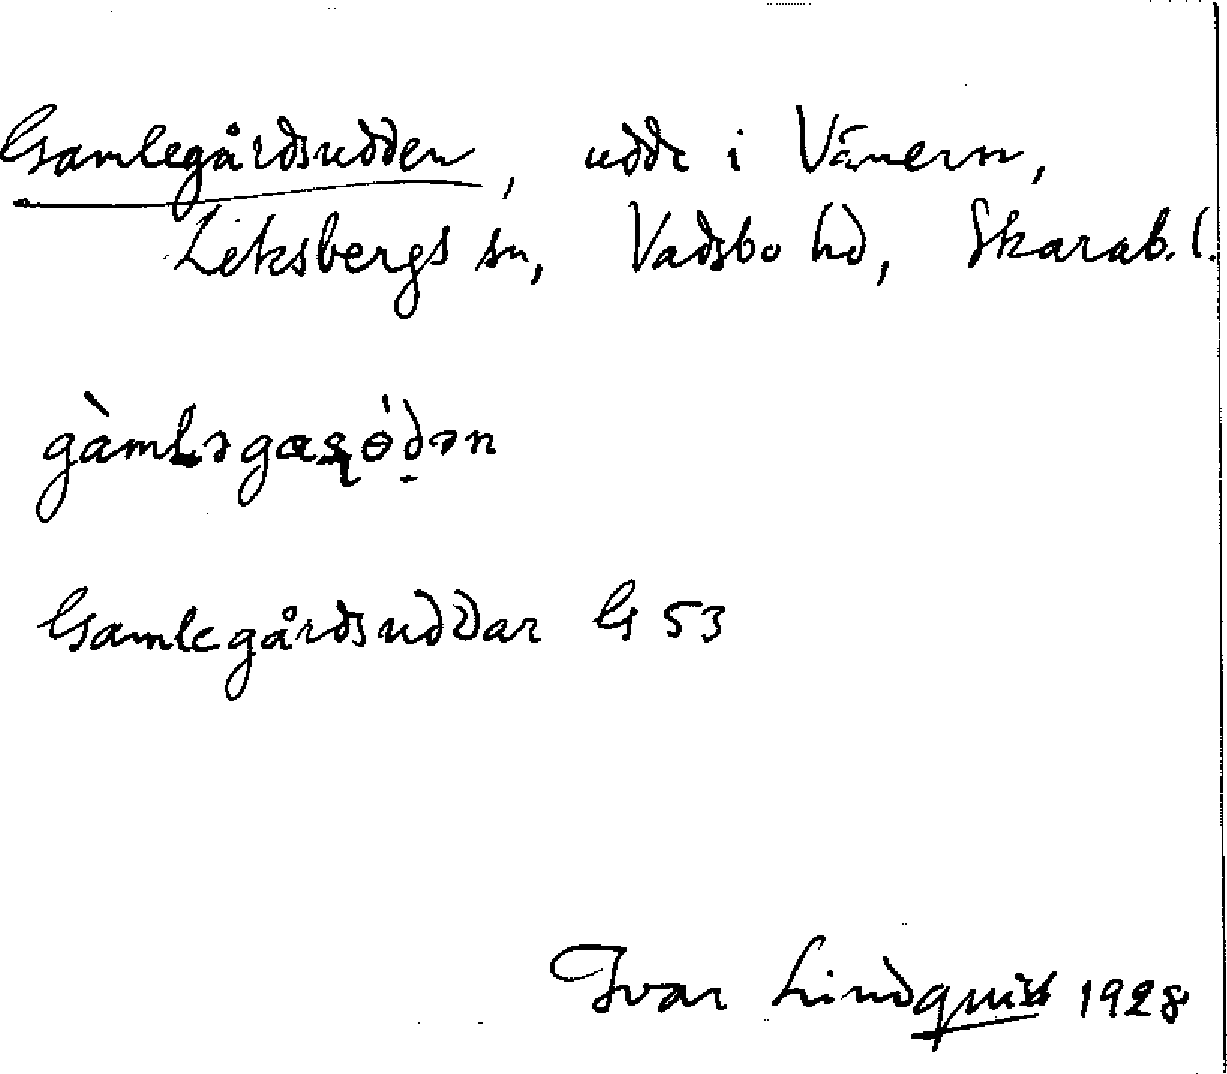 Gamlegårdsudden, udde i Vänern,
Leksbergs sn, Vadsbo hd, Skarab. l.
Gamlegårdsuddar G 53
Ivar Lindquist 1928